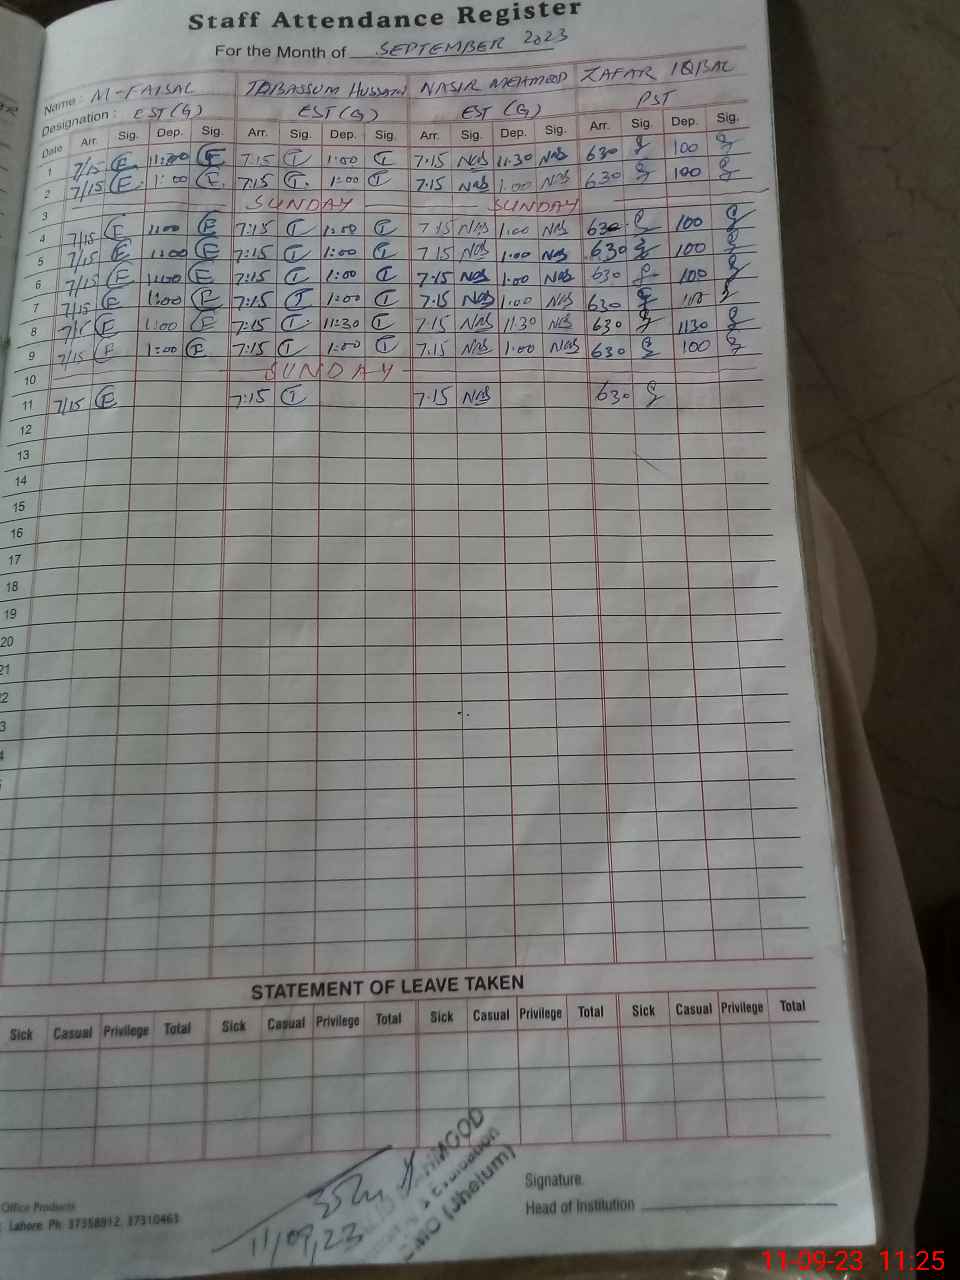 Staff Attendance Register
For the Month of SEPTEMBER 2023
Name : M-FAISAL TABASSUM HUSSAIN NASIR MEHMOOD ZAFAR IQBAL
Designation : EST(G) EST(G) EST(G) PST
Date Arr. Sig. Dep. Sig. Arr. Sig. Dep. Sig. Arr. Sig. Dep. Sig. Arr. Sig. Dep. Sig.
1 7/15 7:15 T 1:00 T 7.15 NAS 11.30 NAS 630 100
2 7/15 1:00 7:15 T 1:00 T 7.15 NAS 1.00 NAS 630 100
3 SUNDAY SUNDAY
4 7/15 1:00 7:15 T 1:00 T 7.15 NAS 1.00 NAS 630 100
5 7/15 1:00 7:15 T 1:00 T 7.15 NAS 1.00 NAS 630 100
6 7/15 7:15 T 1:00 T 7.15 NAS 1.00 NAS 630 100
7 7/15 1:00 7:15 T 1:00 T 7.15 NAS 1.00 NAS 630
8 7/15 1:00 7:15 T 11:30 T 7.15 NAS 11.30 NAS 630 1130
9 7/15 1:00 7:15 T 1:00 T 7.15 NAS 1.00 NAS 630 100
10 SUNDAY
11 7/15 7:15 T 7.15 NAS 630
12
13
14
15
16
17
18
19
20
21
22
STATEMENT OF LEAVE TAKEN
Sick Casual Privilege Total Sick Casual Privilege Total Sick Casual Privilege Total Sick Casual Privilege Total
11/09/23
(Jhelum)
Signature.
Head of Institution
Office Products
Lahore. Ph: 37358912, 37310463
11-09-23 11:25